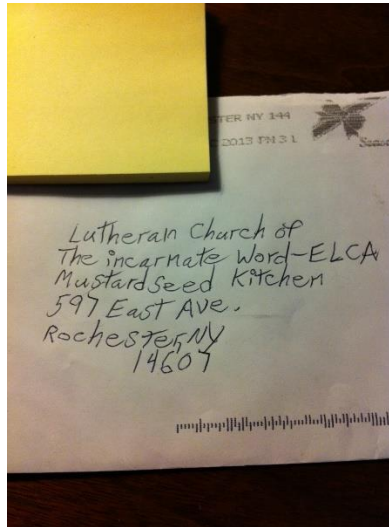 TER NY 144
2013 PM 3 L
Lutheran Church of
The incarnate Word-ELCA
Mustard Seed Kitchen
597 East Ave.
Rochester, NY
14607